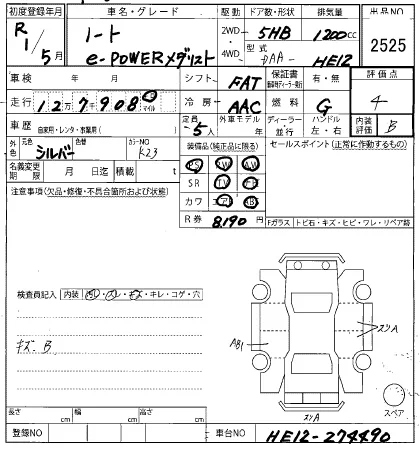 初度登録年月 車名・グレード 駆動 ドア数・形状 排気量 出品NO
R1/5月 ノート 2WD・4WD 5HB 1200cc 2525
e-POWERメダリスト 型式 DAA- HE12
車検 年 月 シフト FAT 保証書 有・無 評価点
走行 12万7千908 km マイル 冷房 AAC 燃料 G 4
車歴 自家用・レンタ・事業用( ) 定員 5人 外車モデル 年 ディーラー 並行 ハンドル 左・右 内装評価 B
外色 元色 シルバー 色替 カラーNO K23 装備品(純正品に限る) セールスポイント(正常に作動するもの)
名義変更期限 月 日迄 積載 t PS SR AW
注意事項(欠品・修復・不具合箇所および状態) SR TV ナビ
カワ エアB AB
R券 8,190円 Fガラス トビ石・キズ・ヒビ・ワレ・リペア跡
検査員記入 内装 汚レ・スレ・キズ・キレ・コゲ・穴
キズ.B
AB1
スリA
スリA
スペア
長さ cm 幅 cm 高さ cm
登録NO 車台NO HE12-274490